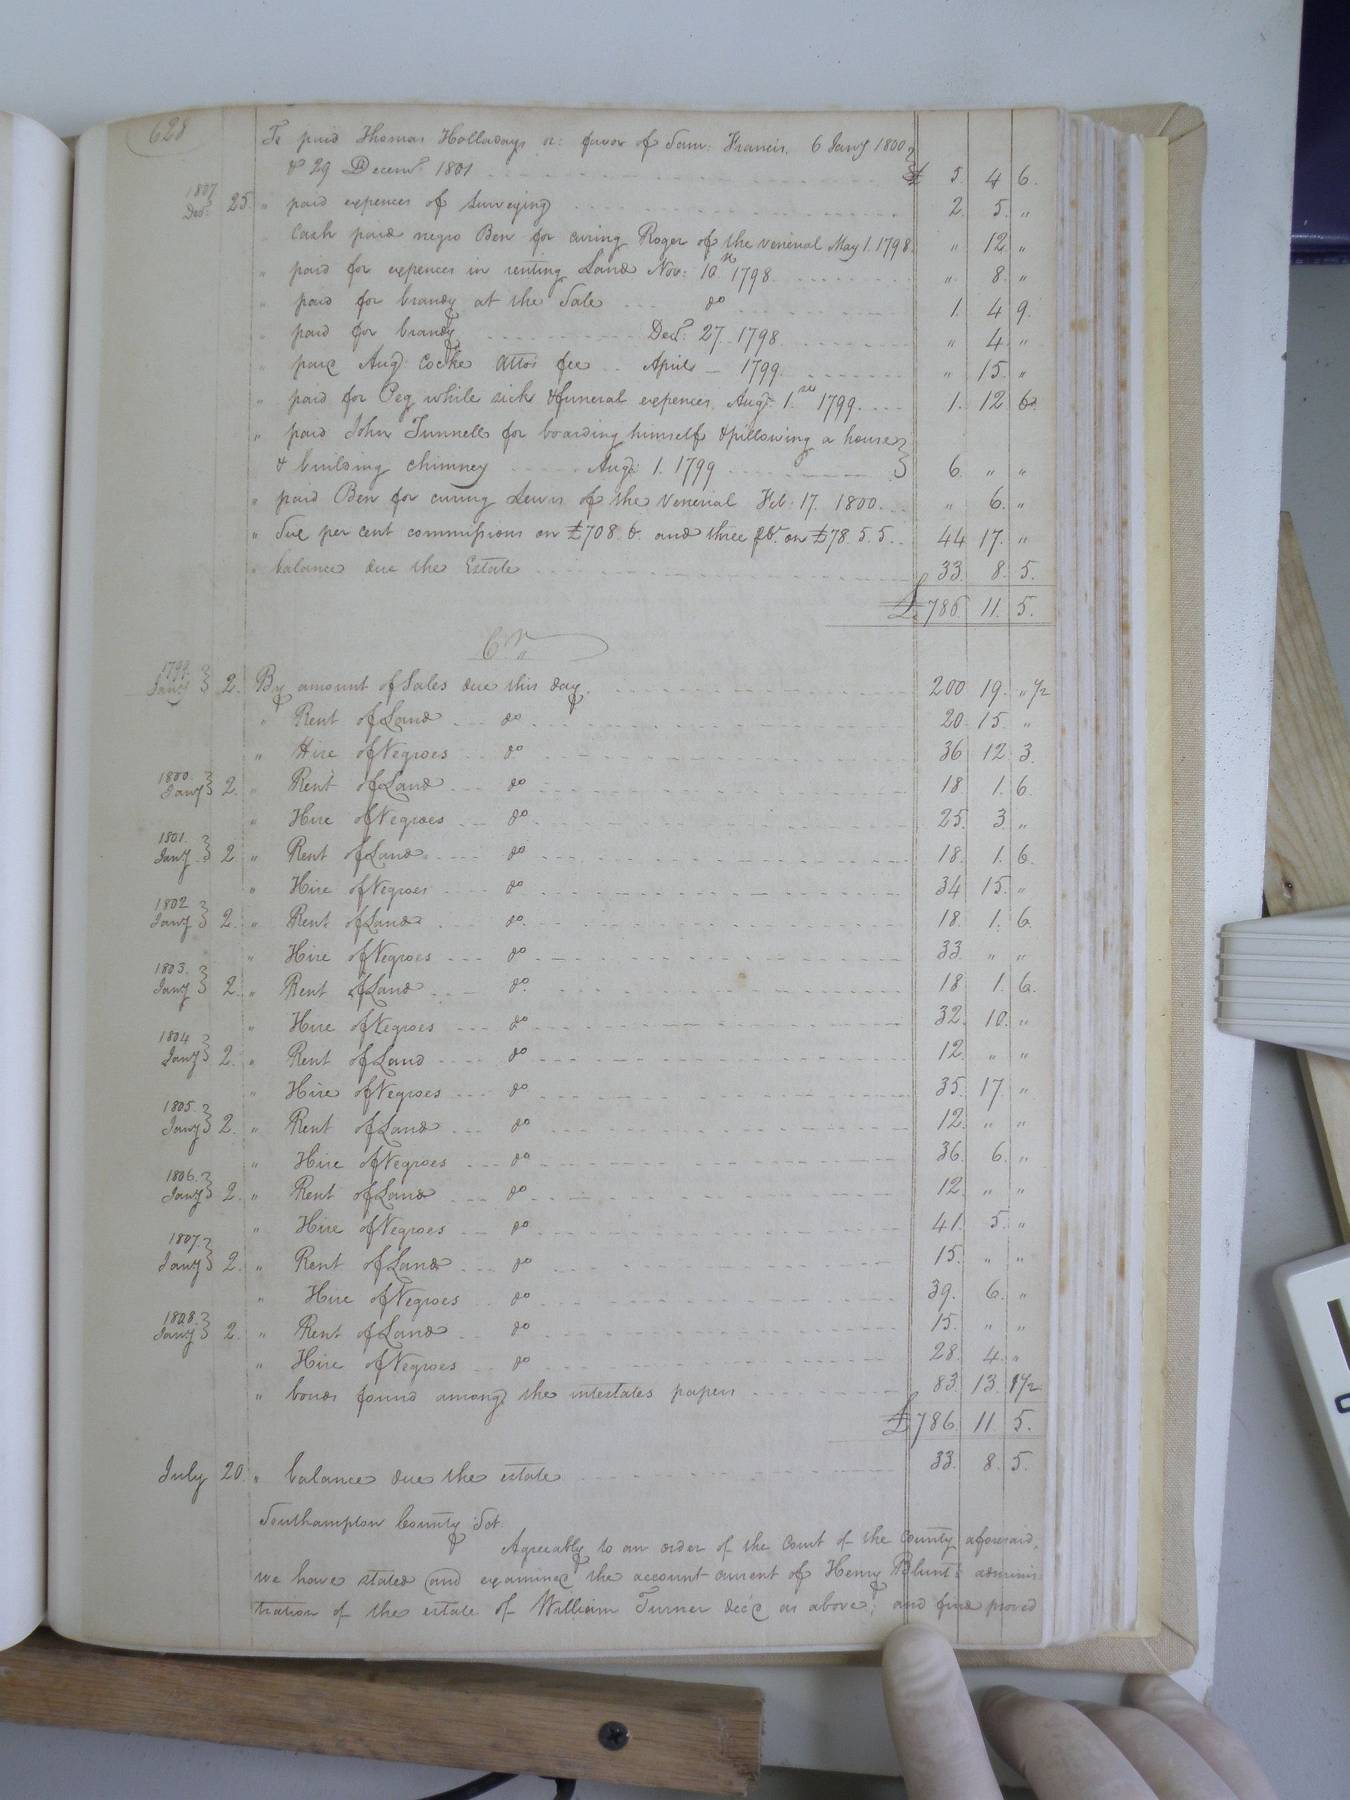 628
To paid Thomas Holladays or: favor of Sam: Francis. 6 Jany 1800
& 29 Decemr. 1801 £ 5. 4 6.
1807 Decr. 25. " paid expences of surveying 2. 5. "
" Cash paid negro Ben for curing Roger of the venerial May 1. 1798. " 12 "
" paid for expences in renting Land Nov: 10th 1798 " 8. "
" paid for brandy at the Sale do 1. 4 9.
" paid for brandy Decr. 27. 1798 " 4 "
" paid Aug: Cocke attos fee April 1799. " 15. "
" paid for Peg while sick & funeral expences. Augt. 1.st 1799. 1. 12 6.
" paid John Tunnell for boarding himself & pillowing a house
& building chimney Augt. 1. 1799 6. " "
" paid Ben for curing Lewis of the venerial Feb: 17. 1800. " 6. "
" Six per cent commissions on £708. 6. and three pCt. on £78. 5. 5. 44 17. "
" balance due the Estate 33. 8. 5.
£ 786 11. 5.
Cr.
1799. Jany 2. By amount of Sales due this day. 200 19. " 1/2
" Rent of Land do 20. 15. "
" Hire of Negroes do 36 12 3.
1800. Jany 2. " Rent of Land do 18 1. 6.
" Hire of Negroes do 25. 3. "
1801. Jany 2 " Rent of Land do 18. 1. 6.
" Hire of Negroes do 34 15. "
1802 Jany 2. " Rent of Land do 18. 1. 6.
" Hire of Negroes do 33. " "
1803. Jany 2. " Rent of Land do 18 1. 6.
" Hire of Negroes do 32. 10. "
1804 Jany 2. " Rent of Land do 12. " "
" Hire of Negroes do 35. 17. "
1805. Jany 2. " Rent of Land do 12. " "
" Hire of Negroes do 36. 6. "
1806. Jany 2. " Rent of Land do 12. " "
" Hire of Negroes do 41. 5. "
1807. Jany 2. " Rent of Land do 15. " "
" Hire of Negroes do 39. 6. "
1808. Jany 2. " Rent of Land do 15. " "
" Hire of Negroes do 28. 4. "
" bonds found among the intestates papers 83. 13. 1 1/2
£ 786. 11 5.
July 20. " balance due the estate 33. 8. 5.
Southampton County Sct.
Agreeably to an order of the Court of the County aforesaid,
we have stated and examined the account current of Henry Blunt's adminis
tration of the estate of William Turner decd as above, and find proved